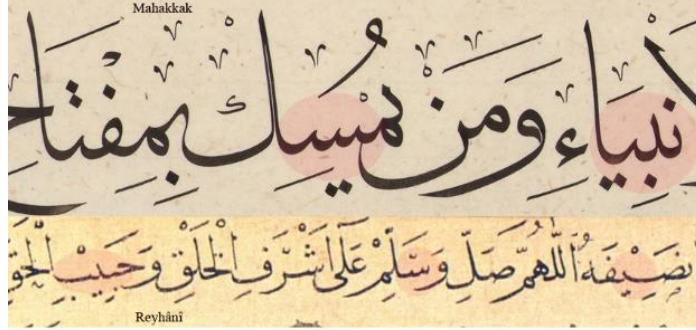 Mahakkak
لأنبياءِ وَمَن يُمْسِك بِمِفْتَاح
بصَحِيْفَهُ اَللّٰهُمَّ صَلِّ وَسَلِّمْ عَلَى اَشْرَفِ الْخَلْقِ وَحَبِيْبِ الْحَقِّ
Reyhânî